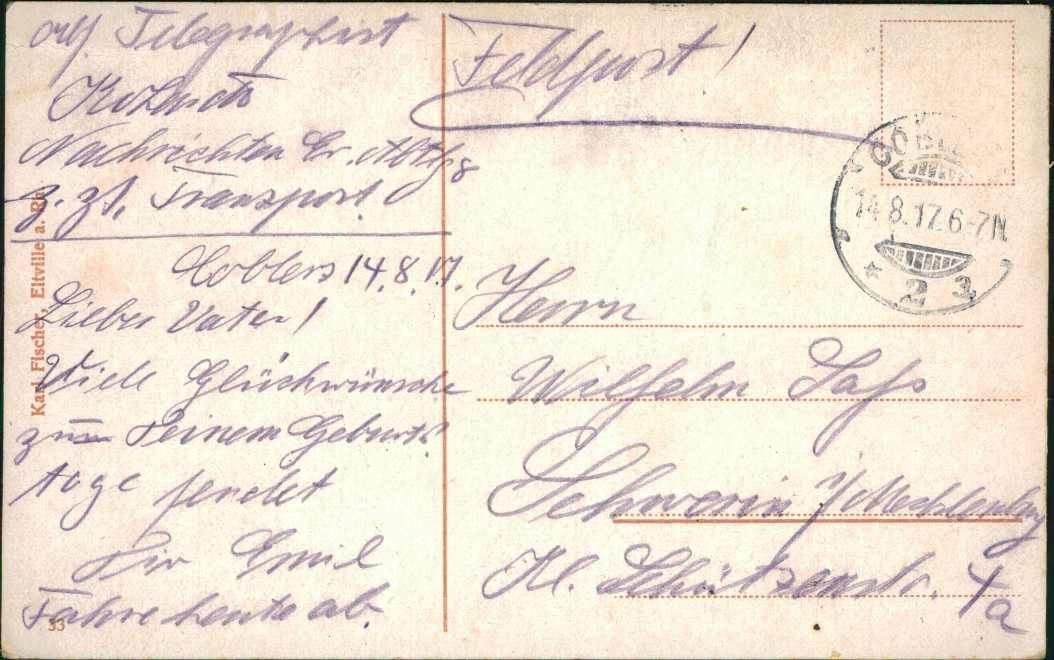 Telegraphist
Nachrichten Er. Abtlg
z. Zt. Transport.
Coblenz 14.8.17.
Lieber Vater!
Viele Glückwünsche
zum Deinem Geburts
tage sendet
Dir Emil
Fahre heute ab.
Karl Fischer, Eltville a. Rh.
33
Feldpost!
COBLENZ
14.8.17.6-7N
* 2 3
Herrn
Wilhelm Sass
Schwerin i/Mecklenbg
Kl. Schützenstr. 4a